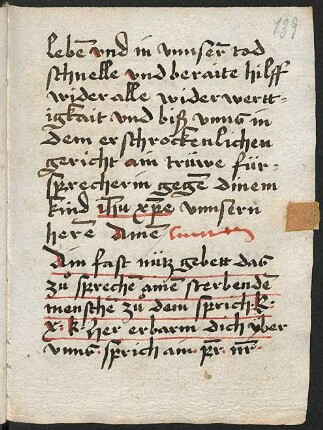 139
lebē vnd in vnnser̄ tod
schnelle vnd beraite hilff
wider alle widerwertt-
igkait vnd biß vnns in
dem erschrockenlichen
gericht ain trüwe für-
sprecherin gegē dinem
kind ihū xp̄e vnnsern
herē Amē
Ain fast nütz gebett das
zů sprechē aim sterbendē
menschē zů dem sprich k.
x. k. her erbarm dich v̈ber
vnns sprich ain pr̄ nr̄.